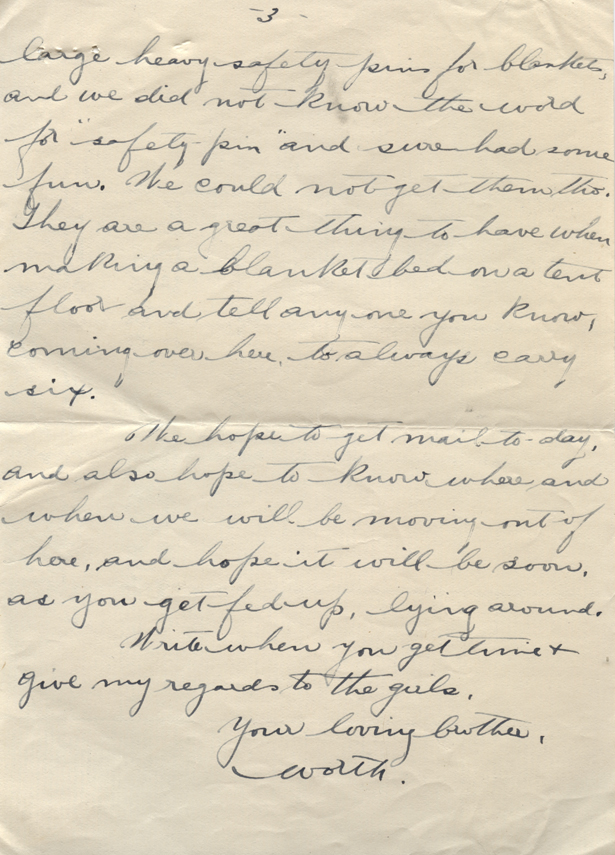 -3-
large heavy safety pins for blankets,
and we did not know the word
for "safety pin" and sure had some
fun. We could not get them tho.
They are a great thing to have when
making a blanket bed on a tent
floor and tell any one you know,
coming over here, to always carry
six.
We hope to get mail to-day,
and also hope to know where and
when we will be moving out of
here, and hope it will be soon,
as you get fed up, lying around.
Write when you get time +
give my regards to the girls.
Your loving brother,
Worth.